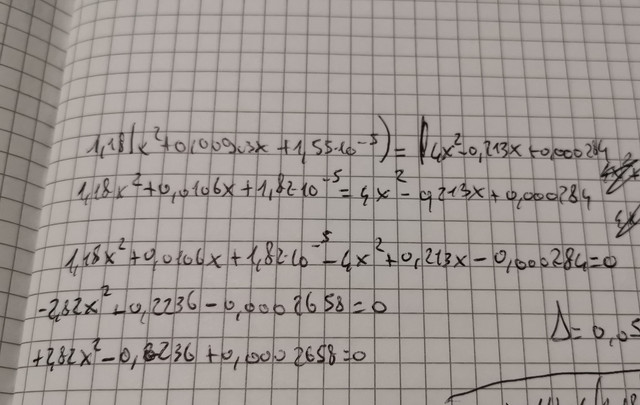 1,18(x²+0,00903x+1,55·10⁻⁵)=(4x²-0,213x+0,000284
1,18x²+0,0106x+1,82·10⁻⁵=4x²-0,213x+0,000284
1,18x²+0,0106x+1,82·10⁻⁵-4x²+0,213x-0,000284=0
-2,82x²-0,2236-0,0002658=0
Δ=0,05
+2,82x²-0,2236+0,0002658=0